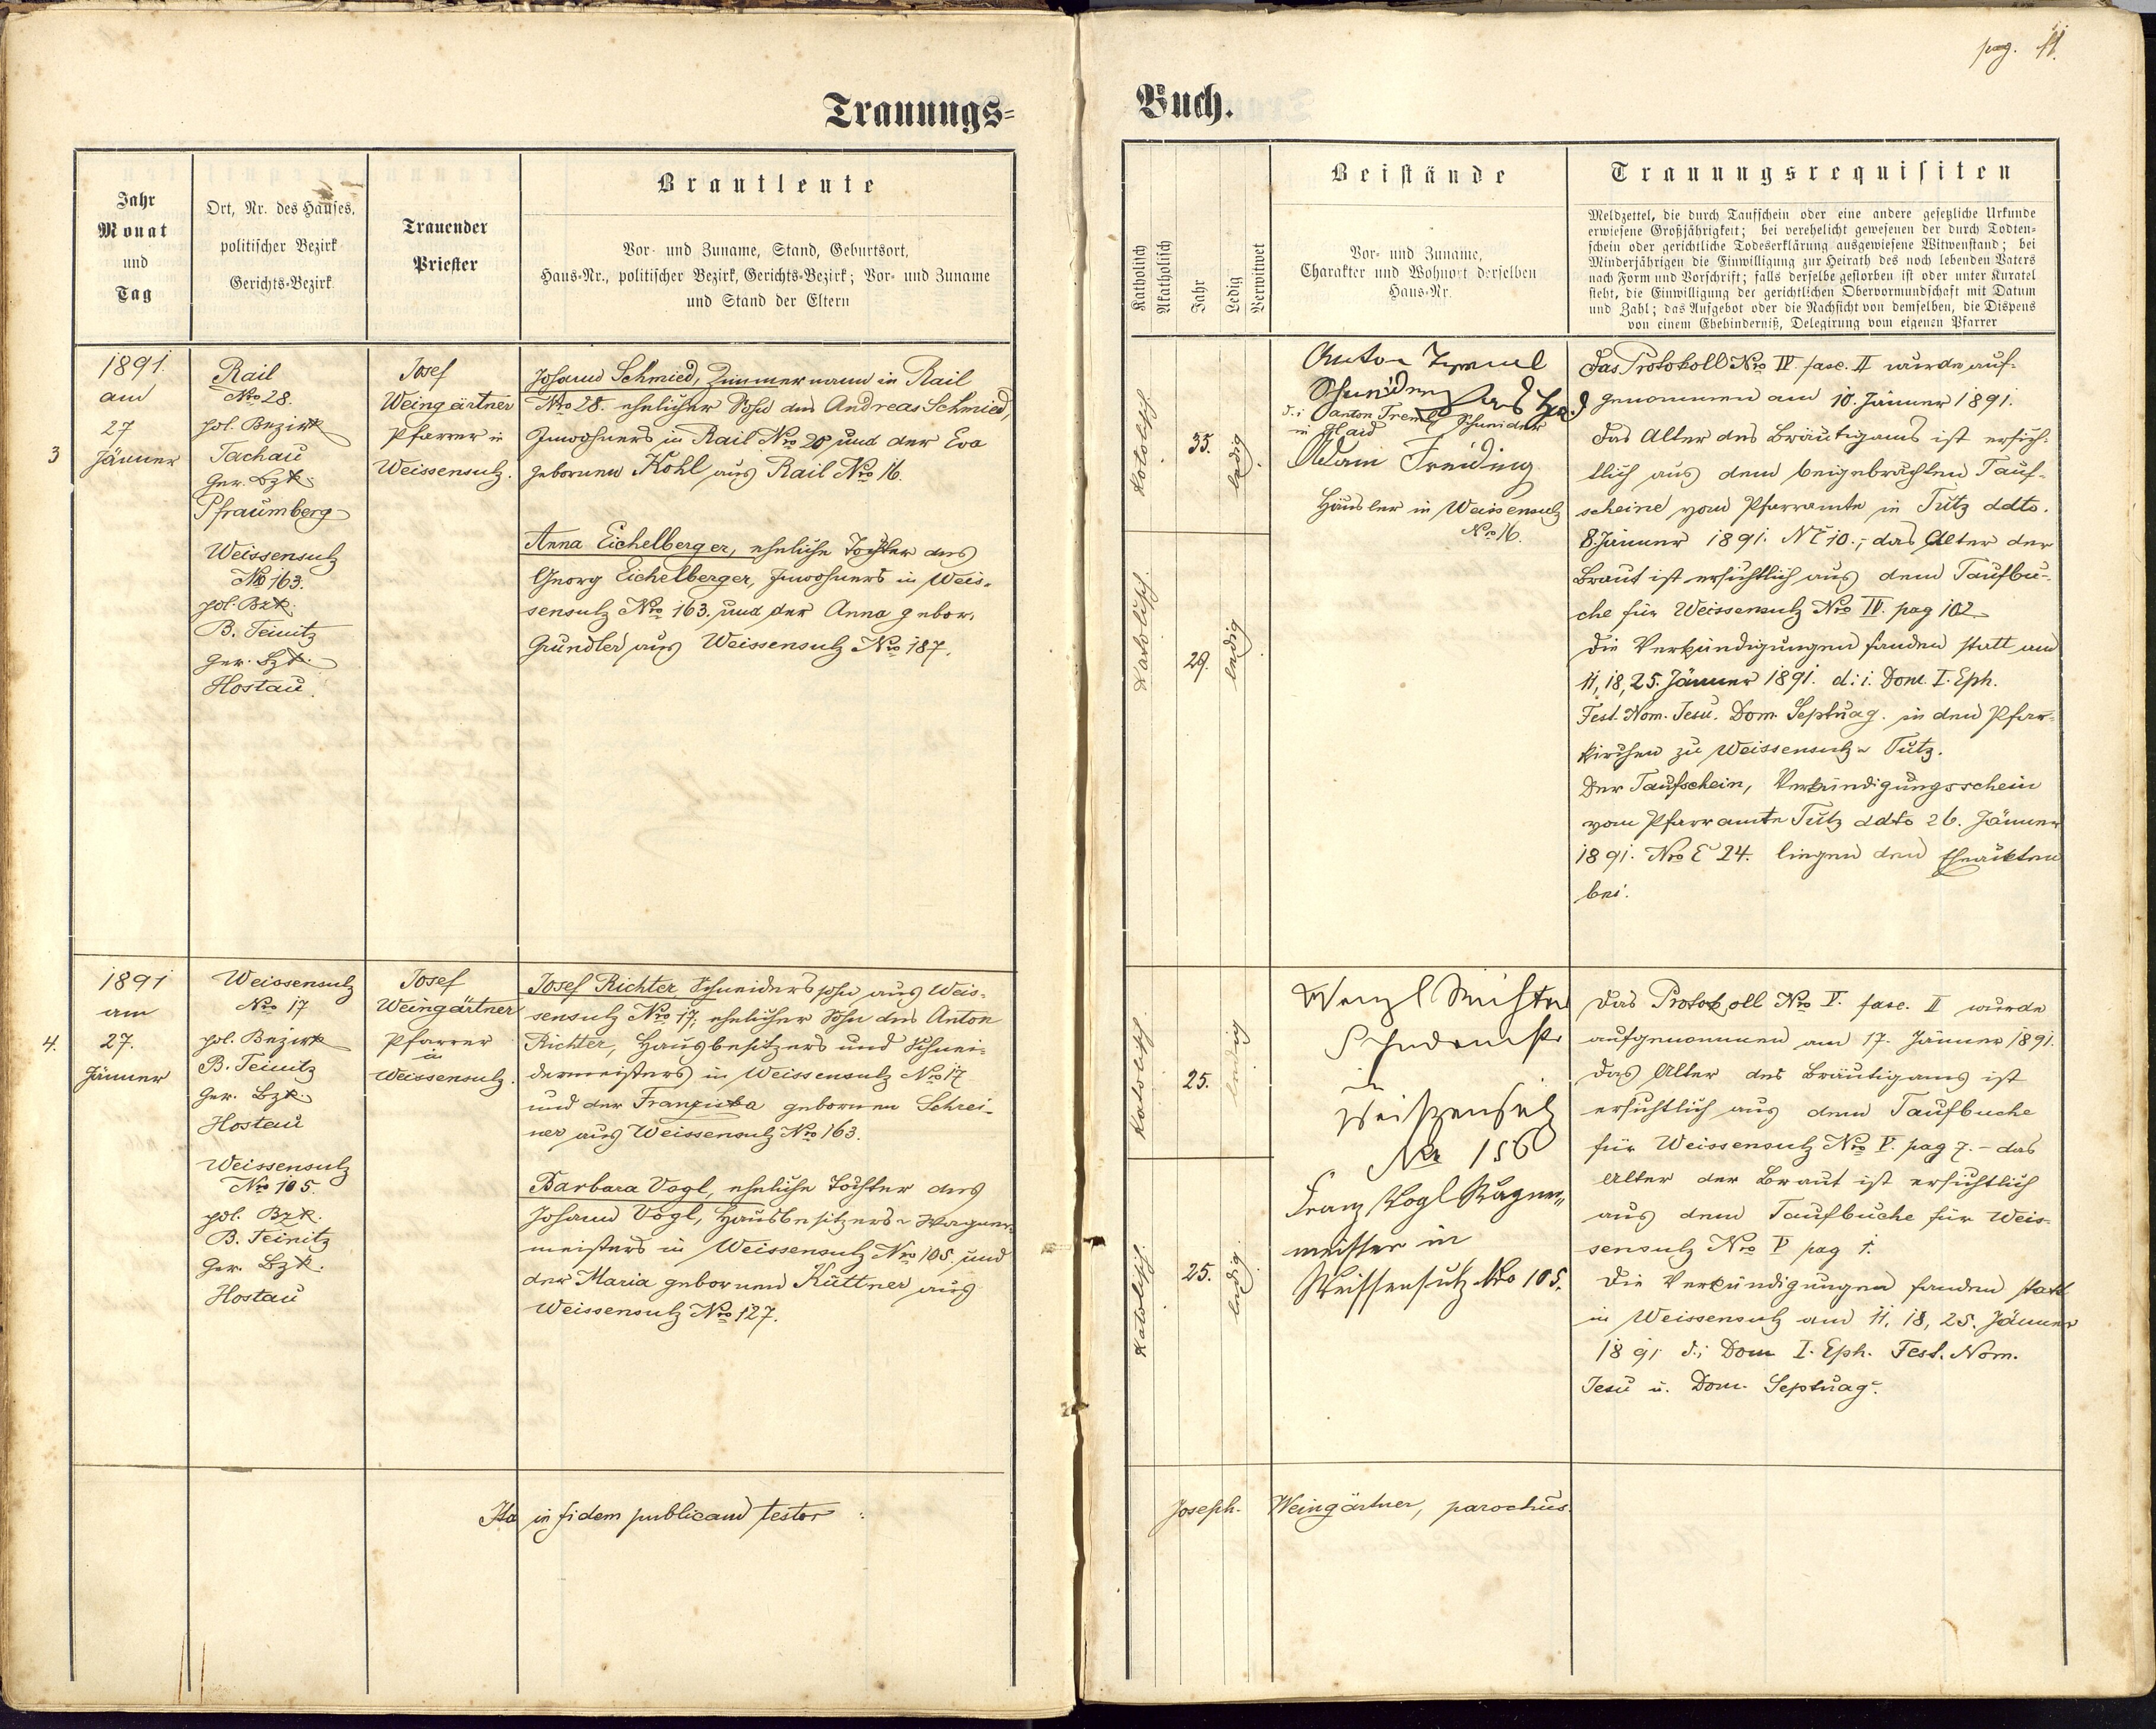 pag. 11.
Trauungs=
Buch.
Jahr
Monat
und
Tag
Ort, Nr. des Hauses,
politischer Bezirk
Gerichts-Bezirk
Trauender
Priester
Brautleute
Vor- und Zuname, Stand, Geburtsort,
Haus-Nr., politischer Bezirk, Gerichts-Bezirk; Vor- und Zuname
und Stand der Eltern
Katholisch
Akatholisch
Jahr
Ledig
Verwitwet
Beistände
Vor- und Zuname,
Charakter und Wohnort derselben
Haus-Nr.
Trauungsrequisiten
Meldzettel, die durch Taufschein oder eine andere gesetzliche Urkunde
erwiesene Großjährigkeit; bei verehelicht gewesenen der durch Todten-
schein oder gerichtliche Todeserklärung ausgewiesene Witwenstand; bei
Minderjährigen die Einwilligung zur Heirath des noch lebenden Vaters
nach Form und Vorschrift; falls derselbe gestorben ist oder unter Kuratel
steht, die Einwilligung der gerichtlichen Obervormundschaft mit Datum
und Zahl; das Aufgebot oder die Nachsicht von demselben, die Dispens
von einem Ehehinderniß, Delegirung vom eigenen Pfarrer
3
1891.
am
27
Jänner
Rail
Nro 28.
pol. Bezirk
Tachau
Ger. Bzk.
Pfraumberg
Weissensulz
Nro 163.
pol. Bzk.
B. Teinitz
Ger. Bzk.
Hostau.
Josef
Weingärtner
Pfarrer in
Weissensulz.
Johann Schmied, Zimmermann in Rail
Nro 28. ehelicher Sohn des Andreas Schmied,
Inwohners in Rail Nro 28 und der Eva
geborenen Kohl aus Rail Nro 16.
Anna Eichelberger, eheliche Tochter des
Georg Eichelberger, Inwohners in Weis-
sensulz Nro 163. und der Anna gebor.
Gründler aus Weissensulz Nro 187.
katolisch.
35.
ledig
katolisch.
29.
ledig
Anton
Schneider
d. i. Anton Treml Schneider
in
Adam Freiding
Häusler in Weissensulz
Nro 16.
Das Protokoll Nro IV fasc. II wurde auf-
genommen am 10. Jänner 1891.
Das Alter des Bräutigams ist ersich-
tlich aus dem beigebrachten Tauf-
scheine vom Pfarramte in Tutz ddto.
8. Jänner 1891. N E 10.; das Alter der
Braut ist ersichtlich aus dem Taufbu-
che für Weissensulz Nro IV. pag 102
Die Verkündigungen fanden statt am
11, 18, 25. Jänner 1891. d. i. Dom. I. Eph.
Fest. Nom. Jesu. Dom. Septuag. in den Pfarr-
kirchen zu Weissensulz u Tutz.
Der Taufschein, Verkündigungsschein
vom Pfarramte Tutz ddto 26. Jänner
1891. Nro E 24. liegen den Eheakten
bei.
4.
1891
am
27.
Jänner
Weissensulz
Nro 17
pol. Bezirk
B. Teinitz
Ger. Bzk.
Hostau
Weissensulz
Nro 105.
pol. Bzk.
B. Teinitz
Ger. Bzk.
Hostau
Josef
Weingärtner
Pfarrer
in
Weissensulz.
Josef Richter Schneiderssohn aus Weis-
sensulz Nro 17, ehelicher Sohn des Anton
Richter, Hausbesitzers und Schnei-
dermeisters in Weissensulz Nro 17
und der Franziska gebornen Schrei-
ner aus Weissensulz Nro 163.
Barbara Vogl, eheliche Tochter des
Johann Vogl, Hausbesitzers u Wagner-
meisters in Weissensulz Nro 105. und
der Maria gebornen Küttner aus
Weissensulz Nro 127.
katolisch.
25.
ledig
katolisch.
25.
ledig.
Wenzl Richter
in
Weissensulz
Nr 156
Franz Vogl Wagner„
meister in
Weissensulz Nro 105.
Das Protokoll Nro V. fasc. II wurde
aufgenommen am 17. Jänner 1891.
Das Alter des Bräutigams ist
ersichtlich aus dem Taufbuche
für Weissensulz Nro V. pag 7. - das
Alter der Braut ist ersichtlich
aus dem Taufbuche für Weis-
sensulz Nro V pag 1.
Die Verkündigungen fanden statt
in Weissensulz am 11, 18, 25. Jänner
1891 d. i. Dom I. Eph. Fest. Nom.
Jesu u. Dom. Septuag.
Ita in fidem publicam testor :
Joseph. Weingärtner, parochus.